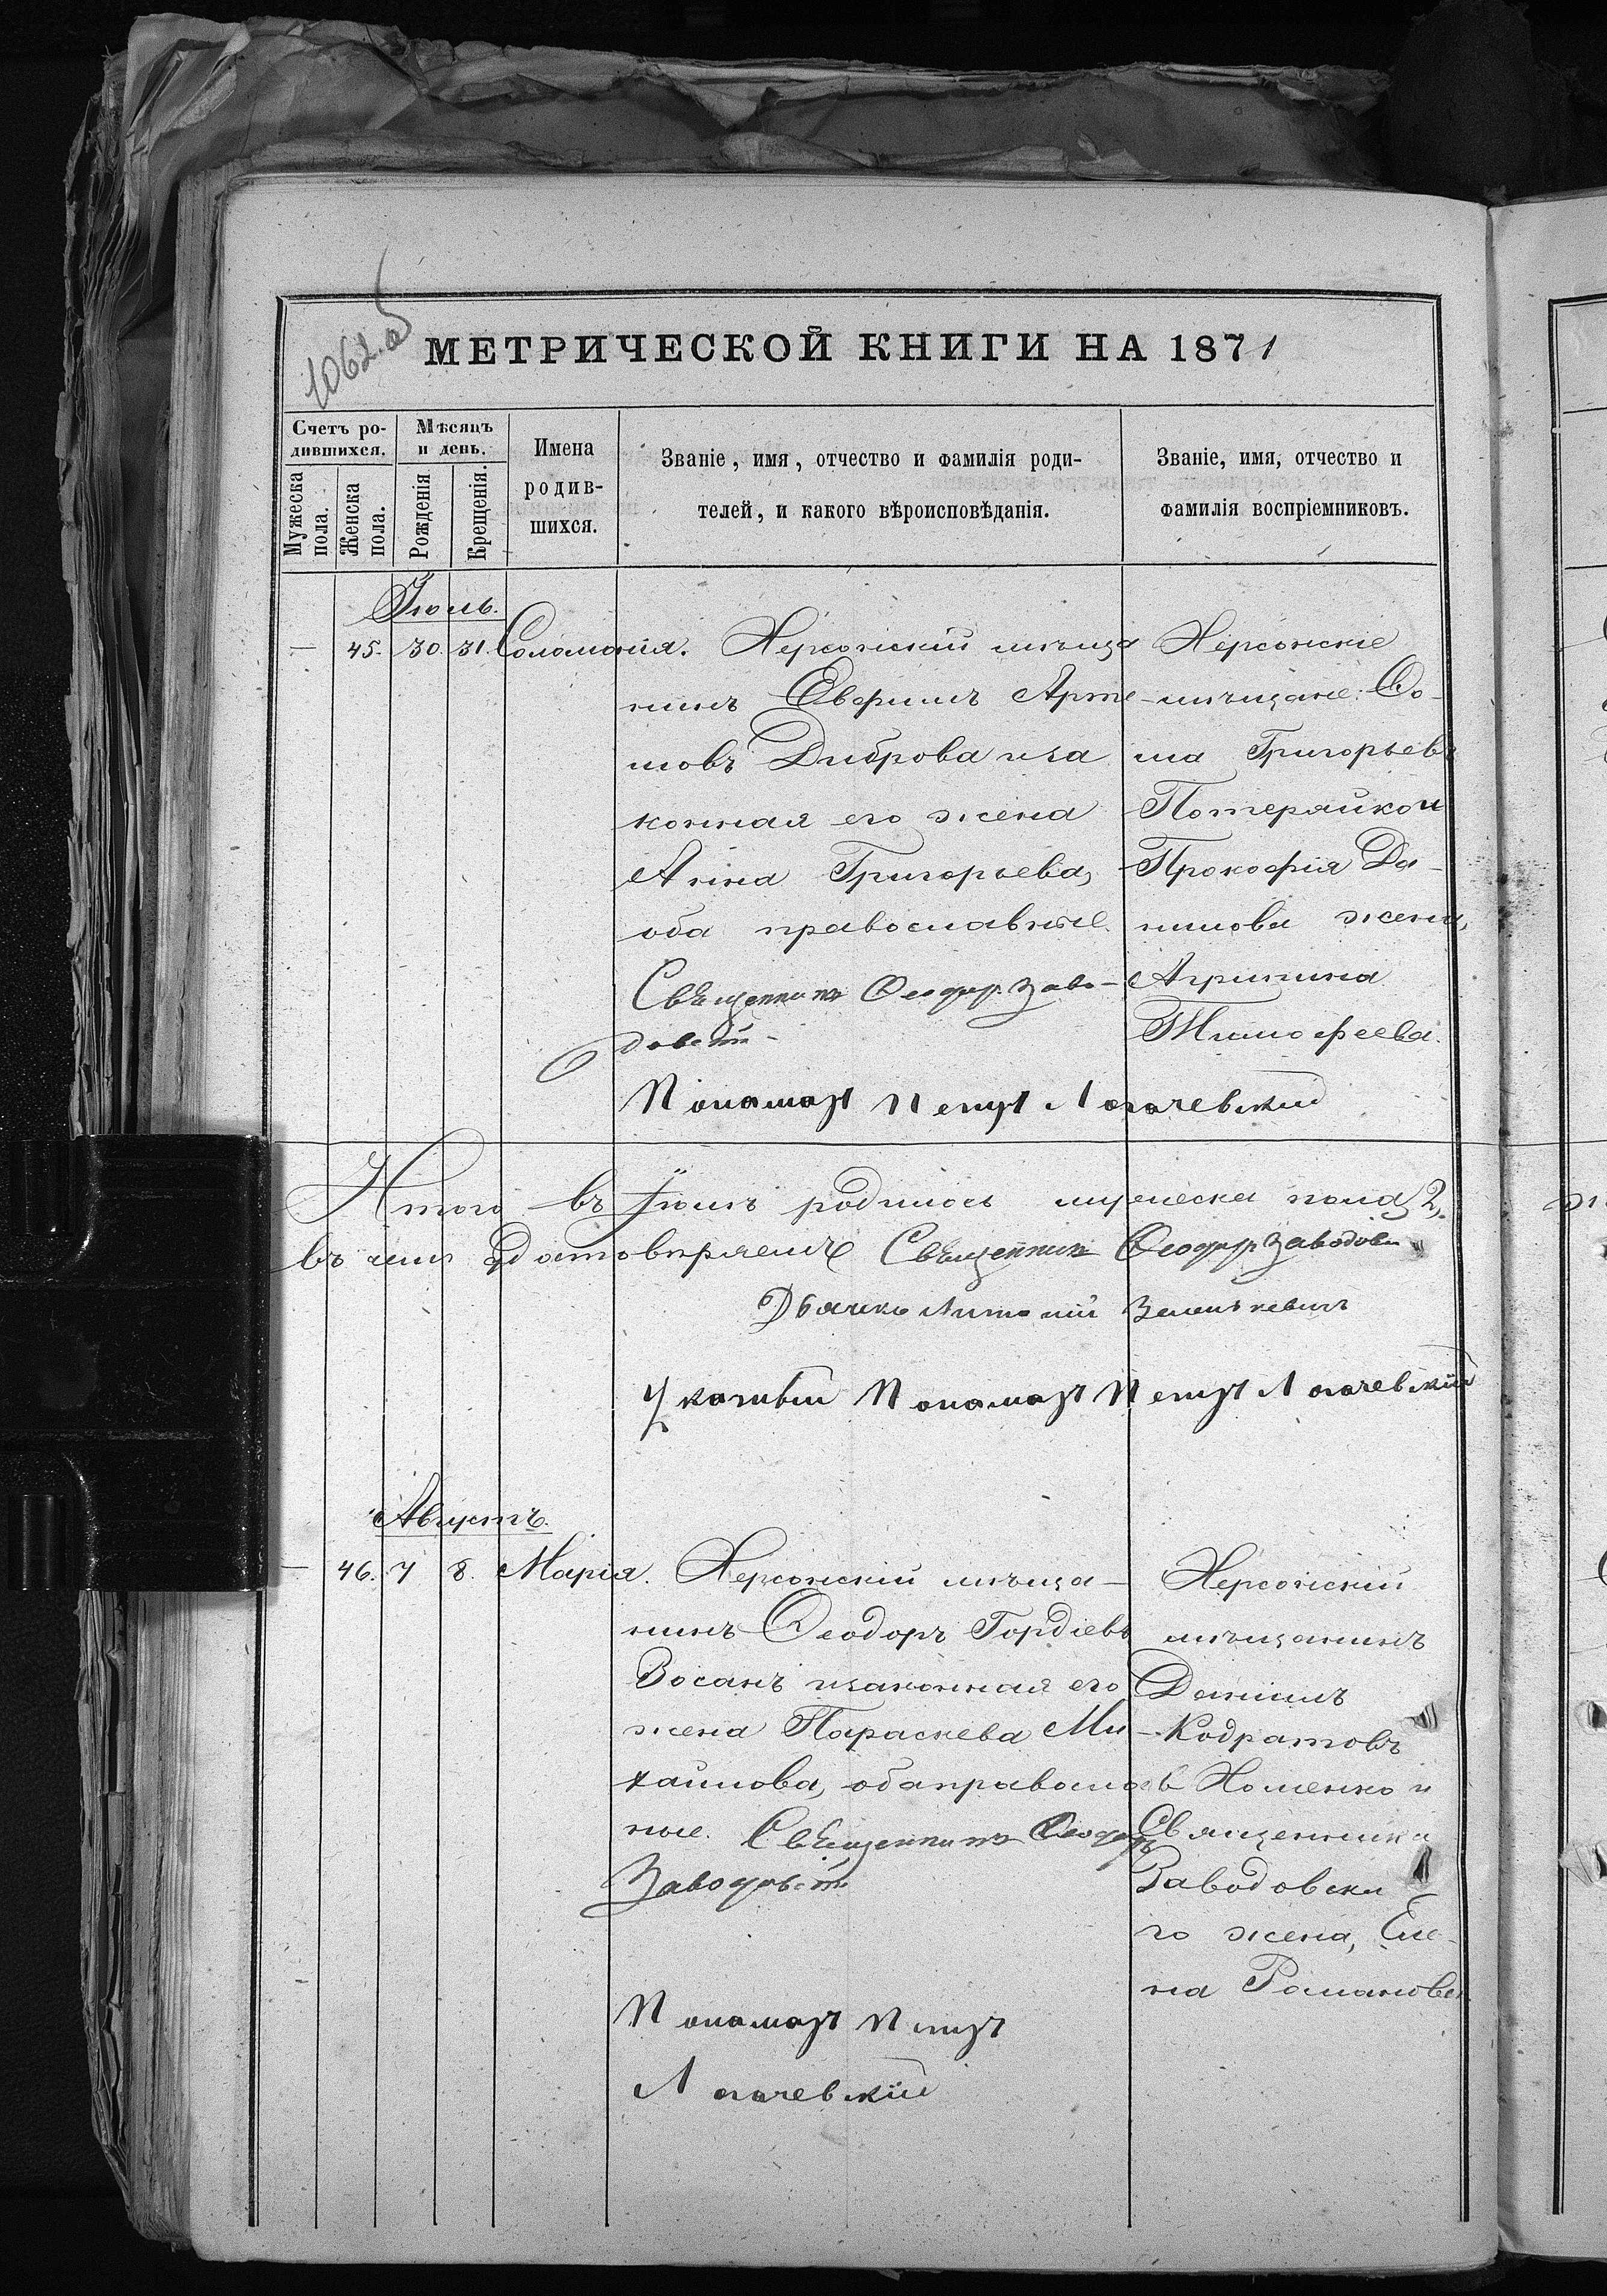 1062.об
МЕТРИЧЕСКОЙ КНИГИ НА 1871
Счетъ ро-
дившихся.
Мужеска пола.
Женска пола.
Мѣсяцъ
и день.
Рожденія
Крещенія.
Имена
родив-
шихся.
Званіе, имя, отчество и фамилія роди-
телей, и какого вѣроисповѣданія.
Званіе, имя, отчество и
фамилія воспріемниковъ.
Іюль.
— 45. 30. 31. Соломонія.
Херсонскій мѣща
нинъ Евфимъ Арте-
мовъ Диброва иза
конная его жена
Анна Григорьева,
оба православные.
Священникъ Ѳеодоръ Заво-
довскій
Пономарь Петръ Логачевскій
Херсонскіе
мѣщане: Ѳо-
ма Григорьевъ
Потеряйко и
Прокофія Да-
нилова жена,
Агрипина
Тимофеева.
Итого въ Іюлѣ родилось мужеска пола 2,
въ чемъ удостовѣряемъ Священникъ Ѳеодоръ Заводовскій
Дьячекъ Антоній
Указивъ Пономарь Петръ Логачевскій
Августъ.
— 46. 7 8. Марія.
Херсонскій мѣща-
нинъ Ѳеодоръ Гордіевъ
Восанъ изаконная его
жена Параскева Ми-
хайлова, оба православ
ные. Священникъ Ѳеодоръ
Заводовскій
Пономарь Петръ
Логачевскій
Херсонскій
мѣщанинъ
Даніилъ
Кодратовъ
Хоменко и
Священника
Заводовска
го жена, Еле-
на Романова